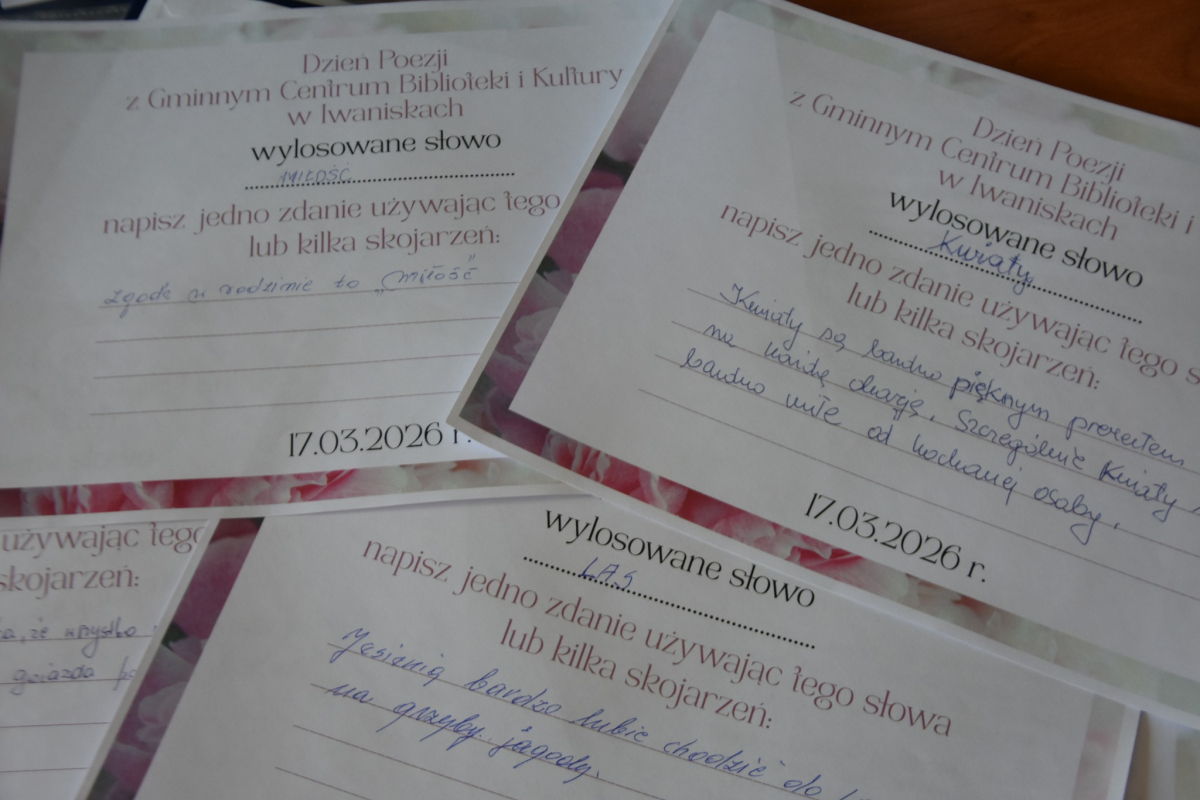 Dzień Poezji
z Gminnym Centrum Biblioteki i Kultury
w Iwaniskach
wylosowane słowo
MIŁOŚĆ
napisz jedno zdanie używając tego
lub kilka skojarzeń:
zgoda w rodzinie to „Miłość”
17.03.2026 r.
Dzień Poezji
z Gminnym Centrum Biblioteki i
w Iwaniskach
wylosowane słowo
Kwiaty
napisz jedno zdanie używając tego s
lub kilka skojarzeń:
Kwiaty są bardzo pięknym prezentem
na każdą okazję. Szczególnie kwiaty
bardzo miłe od kochanej osoby.
17.03.2026 r.
używając tego
skojarzeń:
że wszystko
gwiazda
wylosowane słowo
LAS
napisz jedno zdanie używając tego słowa
lub kilka skojarzeń:
Jesienią bardzo lubię chodzić do
na grzyby. jagody.